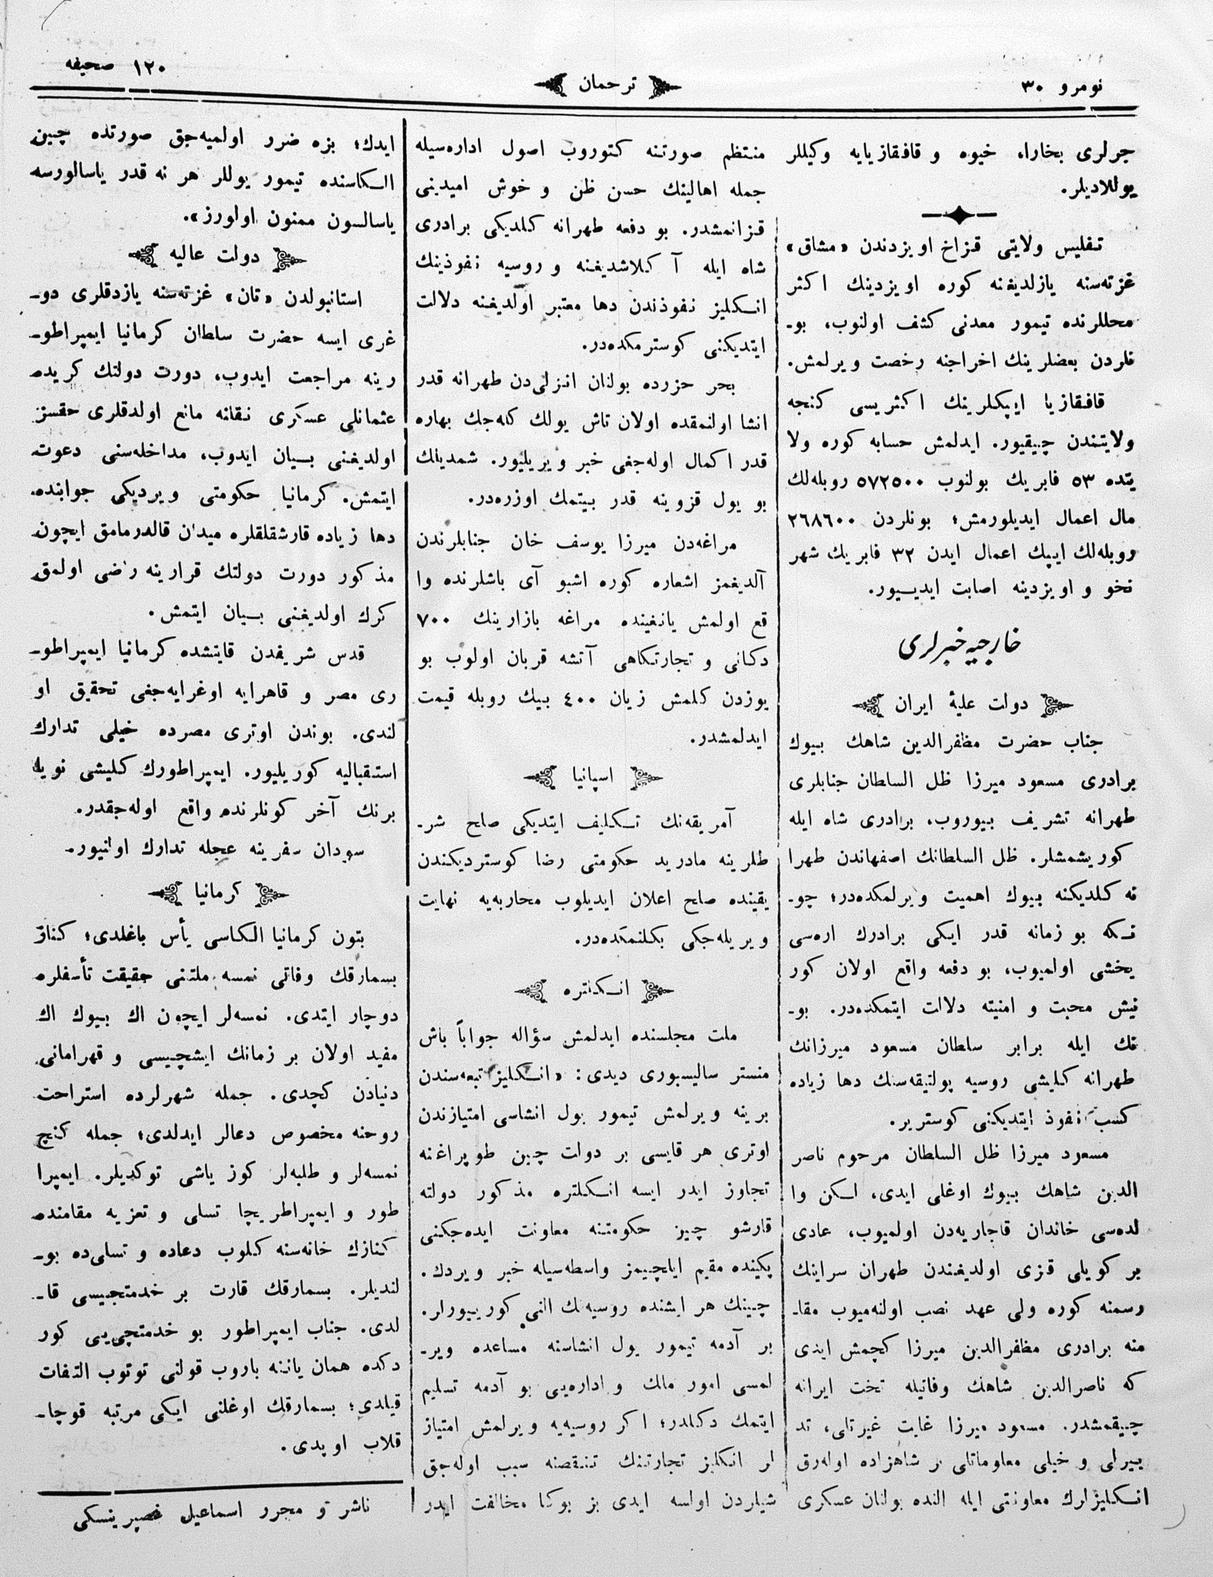 نومرو ٣٠
ترجمان
١٢٠ صحیفه
جرلری بخارا، خیوه و قافقازیایه وکیللر
یوللادیلر.
تفلیس ولایتی قزاخ اویزدندن «مشاق»
غزته‌سنه یازلدیغنه کوره اویزدینك اکثر
محللرنده تیمور معدنی کشف اولنوب، بو-
نلردن بعضلرینك اخراجنه رخصت ویرلمش.
قافقازیا ایپکلرینك اکثریسی کنجه
ولایتندن چیقیور. ایدلمش حسابه کوره ولا
یتده ٥٣ فابریك بولنوب ٥٧٢٥٠٠ روبله‌لك
مال اعمال ایدیلورمش؛ بونلردن ٢٦٨٦٠٠
روبله‌لك ایپك اعمال ایدن ٣٢ فابریك شهر
نخو و اویزدینه اصابت ایدییور.
خارجیه خبرلری
دولت علیهٔ ایران
جناب حضرت مظفرالدین شاهك بیوك
برادری مسعود میرزا ظل السلطان جنابلری
طهرانه تشریف بیوروب، برادری شاه ایله
کوریشمشلر. ظل السلطانك اصفهاندن طهرا
نه کلدیکنه بیوك اهمیت ویرلمکده‌در؛ چو-
نکه بو زمانه قدر ایکی برادرك اره‌سی
یخشی اولمیوب، بو دفعه واقع اولان کور
نیش محبت و امنیته دلالت ایتمکده‌در. بو-
نك ایله برابر سلطان مسعود میرزانك
طهرانه کلیشی روسیه پولتیقه‌سنك دها زیاده
کسب نفوذ ایتدیکنی کوستریر.
مسعود میرزا ظل السلطان مرحوم ناصر
الدین شاهك بیوك اوغلی ایدی، لکن وا
لده‌سی خاندان قاجاریه‌دن اولمیوب، عادی
بر کویلی قزی اولدیغندن طهران سراینك
رسمنه کوره ولی عهد نصب اولنه‌میوب مقا-
منه برادری مظفرالدین میرزا کچمش ایدی
که ناصرالدین شاهك وفاتیله تخت ایرانه
چیقمشدر. مسعود میرزا غایت غیرتلی، تد
بیرلی و خیلی معلوماتلی بر شاهزاده اوله‌رق
انکلیزلرك معاونتی ایله النده بولنان عسکری
منتظم صورتنه کتوروب اصول اداره‌سیله
جمله اهالینك حسن ظن و خوش امیدینی
قزانمشدر. بو دفعه طهرانه کلدیکی برادری
شاه ایله آکلاشدیغنه و روسیه نفوذینك
انکلیز نفوذندن دها معتبر اولدیغنه دلالت
ایتدیکنی کوسترمکده‌در.
بحر حزرده بولنان انزلی‌دن طهرانه قدر
انشا اولنمقده اولان تاش یولك کله‌جك بهاره
قدر اکمال اوله‌جغی خبر ویریلیور. شمدیلك
بو یول قزوینه قدر بیتمك اوزره‌در.
مراغه‌دن میرزا یوسف خان جنابلرندن
آلدیغمز اشعاره کوره اشبو آی باشلرنده وا
قع اولمش یانغینده مراغه بازارینك ٧٠٠
دکانی و تجارتکاهی آتشه قربان اولوب بو
یوزدن کلمش زیان ٤٠٠ بیك روبله قیمت
ایدلمشدر.
اسپانیا
آمریقه‌نك تکلیف ایتدیکی صلح شر-
طلرینه مادرید حکومتی رضا کوستردیکندن
یقینده صلح اعلان ایدیلوب محاربه‌یه نهایت
ویریله‌جکی بکلنمکده‌در.
انکلتره
ملت مجلسنده ایدلمش سؤاله جواباً باش
منستر سالیسبوری دیدی: «انکلیز تبعه‌سندن
برینه ویرلمش تیمور یول انشاسی امتیازندن
اوتری هر قایسی بر دولت چین طوپراغنه
تجاوز ایدر ایسه انکلتره مذکور دولته
قارشو چین حکومتنه معاونت ایده‌جکنی
پکینده مقیم ایلچیمز واسطه‌سیله خبر ویردك.
چینك هر ایشنده روسیه‌نك النی کورییورلر.
بر آدمه تیمور یول انشاسنه مساعده ویر-
لمسی امور مالك و اداره‌یی بو آدمه تسلیم
ایتمك دکلدر؛ اکر روسیه‌یه ویرلمش امتیاز
لر انکلیز تجارتنك تنقصنه سبب اوله‌جق
شیلردن اولسه ایدی بز بوکا مخالفت ایدر
ایدك؛ بزه ضرر اولمیه‌جق صورتده چین
الکاسنده تیمور یوللر هر نه قدر یاسالورسه
یاسالسون ممنون اولورز».
دولت عالیه
استانبولدن «تان» غزته‌سنه یازدقلری دو-
غری ایسه حضرت سلطان کرمانیا ایمپراطو-
رینه مراجعت ایدوب، دورت دولتك کریده
عثمانلی عسکری نقلنه مانع اولدقلری حقسز
اولدیغنی بیان ایدوب، مداخله‌سنی دعوت
ایتمش. کرمانیا حکومتی ویردیکی جوابنده
دها زیاده قارشقلقلره میدان قالدرمامق ایچون
مذکور دورت دولتك قرارینه راضی اولمق
کرك اولدیغنی بیان ایتمش.
قدس شریفدن قایتشده کرمانیا ایمپراطو-
ری مصر و قاهرایه اوغرایه‌جغی تحقیق او
لندی. بوندن اوتری مصرده خیلی تدارك
استقبالیه کوریلیور. ایمپراطورك کلیشی نویا
برنك آخر کونلرنده واقع اوله‌جقدر.
سودان سفرینه عجله تدارك اولنیور.
کرمانیا
بتون کرمانیا الکاسی یأس باغلدی؛ کناز
بسمارقك وفاتی نمسه ملتنی حقیقت تأسفلره
دوچار ایتدی. نمسه‌لر ایچون اك بیوك اك
مفید اولان بر زمانك ایشچیسی و قهرمانی
دنیادن کچدی. جمله شهرلرده استراحت
روحنه مخصوص دعالر ایدلدی؛ جمله کنج
نمسه‌لر و طلبه‌لر کوز یاشی توکدیلر. ایمپرا
طور و ایمپراطریچا تسلی و تعزیه مقامنده
کنازك خانه‌سنه کلوب دعاده و تسلی‌ده بو-
لندیلر. بسمارقك قارت بر خدمتجیسی قا-
لدی. جناب ایمپراطور بو خدمتچی‌یی کور
دکده همان یاننه باروب قولنی توتوب التفات
قیلدی؛ بسمارقك اوغلنی ایکی مرتبه قوچا-
قلاب اوپدی.
ناشر و محرر اسماعیل غصپرینسکی